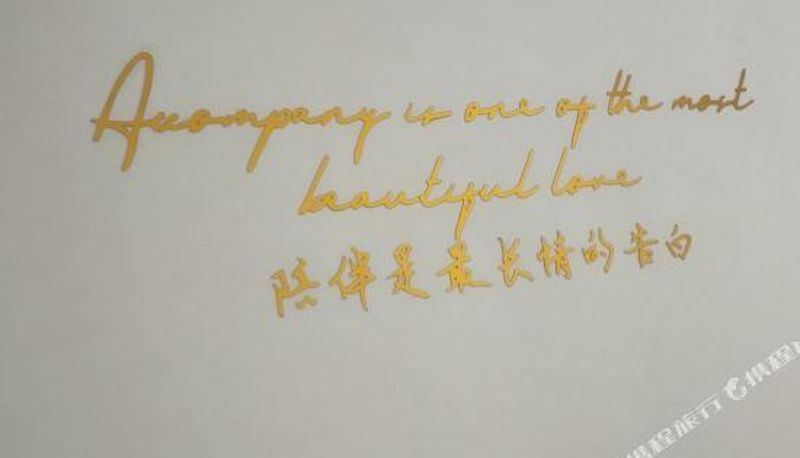 Accompany is one of the most
beautiful love
陪伴是最长情的告白
携程旅行 携程